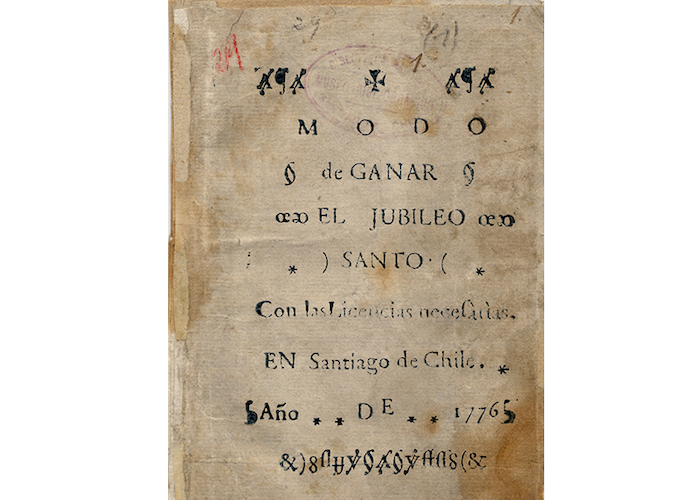 29 (1) 1.
1.
M O D O
§ de GANAR §
œɔ EL JUBILEO œɔ
* ) SANTO · ( *
Con las Licencias necesàrias.
EN Santiago de Chile. *
Año * * DE * * 1776